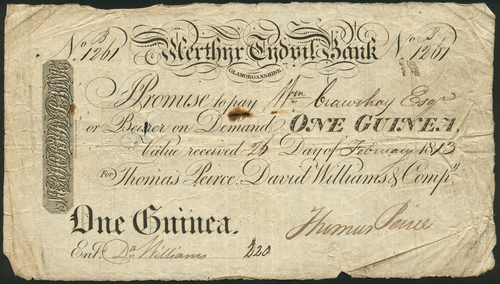 No. B 1261 Merthyr Tydvil Bank No. B 1261
GLAMORGANSHIRE.
I Promise to pay Wm Crawshay Esqr
or Bearer on Demand ONE GUINEA,
Value received 26 Day of February 1813
For Thomas Peirce, David Williams & Compy.
One Guinea. Thomas Peirce
Entd. Dd. Williams